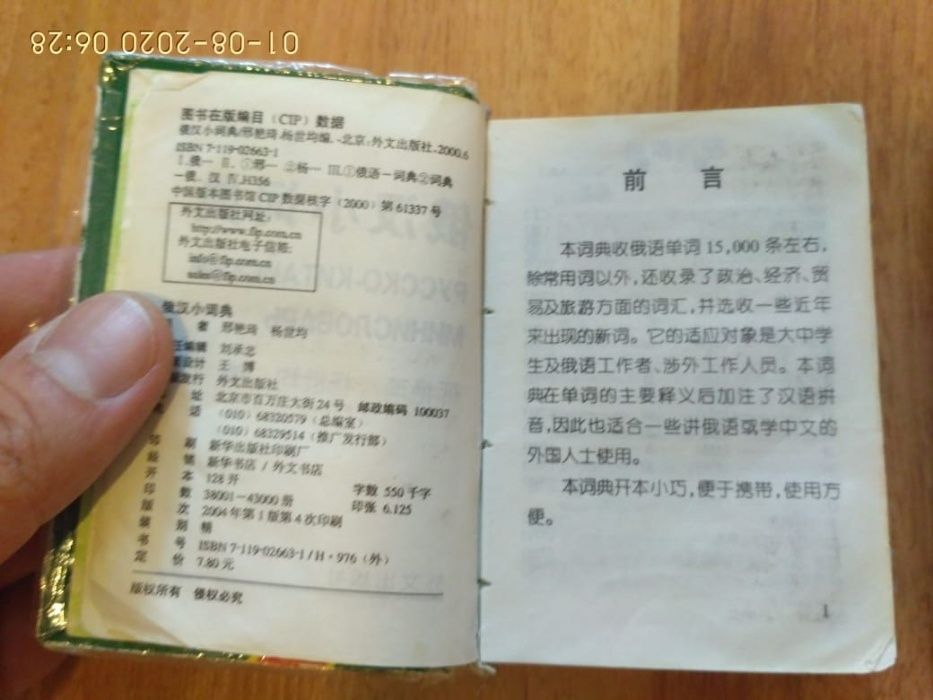 01-08-2020 06:28
图书在版编目（CIP）数据
俄汉小词典/邢艳琦 杨世均编.-北京:外文出版社.2000.6
ISBN 7-119-02663-1
Ⅰ.俄… Ⅱ.①邢… ②杨… Ⅲ.①俄语－词典②词典
－俄、汉 Ⅳ.H356
中国版本图书馆 CIP 数据核字（2000）第 61337 号
外文出版社网址:
http://www.flp.com.cn
外文出版社电子信箱:
info@flp.com.cn
sales@flp.com.cn
俄汉小词典
者 杨世均
刘承忠
设计 王 博
发行 外文出版社
址 北京市百万庄大街24号 邮政编码 100037
话 (010) 68320579（总编室）
(010) 68329514（推广发行部）
印 刷 新华出版社印刷厂
经 销 新华书店 / 外文书店
开 本 128 开 字数 550 千字
印 数 38001—43000 册 印张 6.125
版 次 2004 年第 1 版第 4 次印刷
装 别 精
书 号 ISBN 7-119-02663-1 / H·976（外）
定 价 7.80 元
版权所有 侵权必究
前 言
本词典收俄语单词 15,000 条左右,
除常用词以外,还收录了政治、经济、贸
易及旅游方面的词汇,并选收一些近年
来出现的新词。它的适应对象是大中学
生及俄语工作者、涉外工作人员。本词
典在单词的主要释义后加注了汉语拼
音,因此也适合一些讲俄语或学中文的
外国人士使用。
本词典开本小巧,便于携带,使用方
便。
1